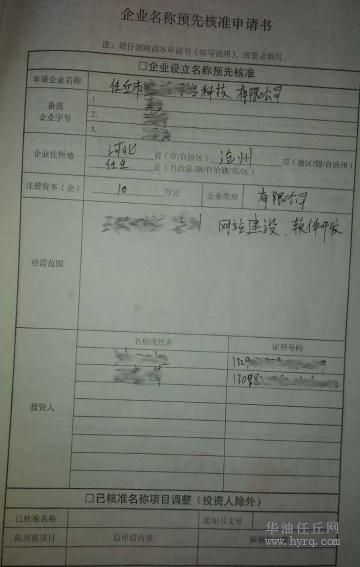 企业名称预先核准申请书
注：请仔细阅读本申请书《填写说明》，按要求填写。
□企业设立名称预先核准
申请企业名称 任丘市 科技 有限公司
备选
企业字号
1.
2.
3.
企业住所地 河北 省（市/自治区） 沧州 市（地区/盟/自治州）
任丘 县（自治县/旗/自治旗/市/区）
注册资本（金） 10 万元 企业类型 有限公司
经营范围 、网站建设、软件开发
投资人
名称或姓名 证照号码
1309
□已核准名称项目调整（投资人除外）
已核准名称 通知书文号
拟调整项目 原申请内容 拟调
华油任丘网
www.hyrq.com